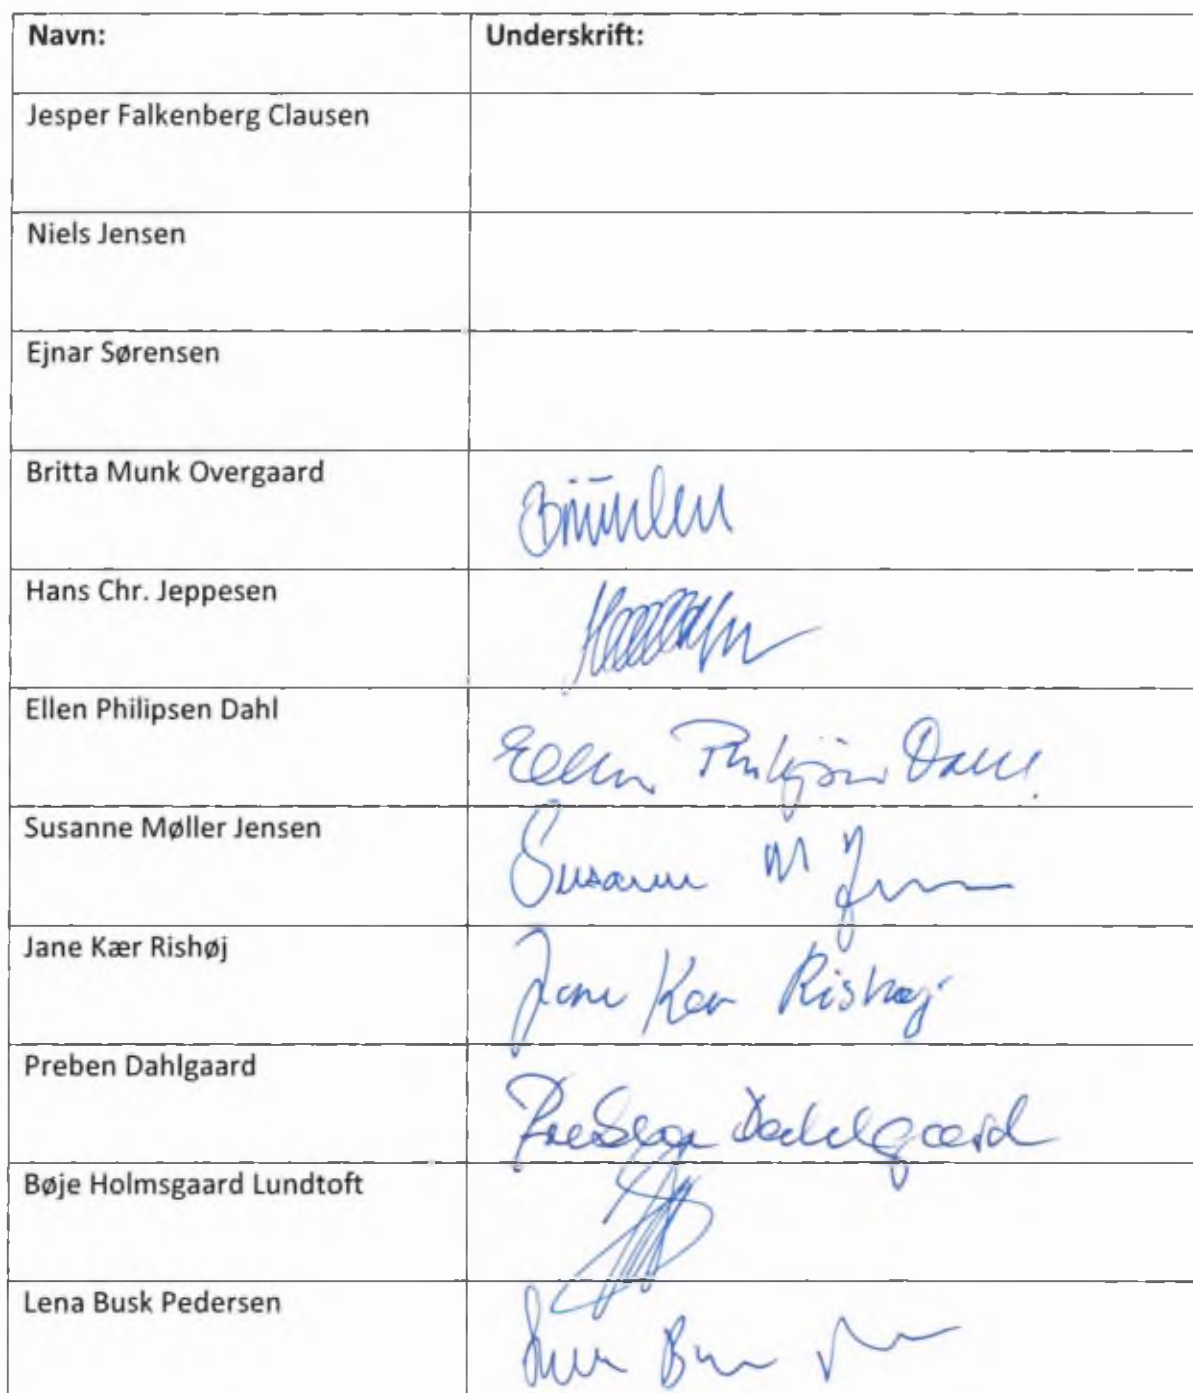 Navn: Underskrift:
Jesper Falkenberg Clausen
Niels Jensen
Ejnar Sørensen
Britta Munk Overgaard
Hans Chr. Jeppesen
Ellen Philipsen Dahl
Ellen Philipsen Dahl
Susanne Møller Jensen
Susanne M Jensen
Jane Kær Rishøj
Jane Kær Rishøj
Preben Dahlgaard
Preben Dahlgaard
Bøje Holmsgaard Lundtoft
Lena Busk Pedersen